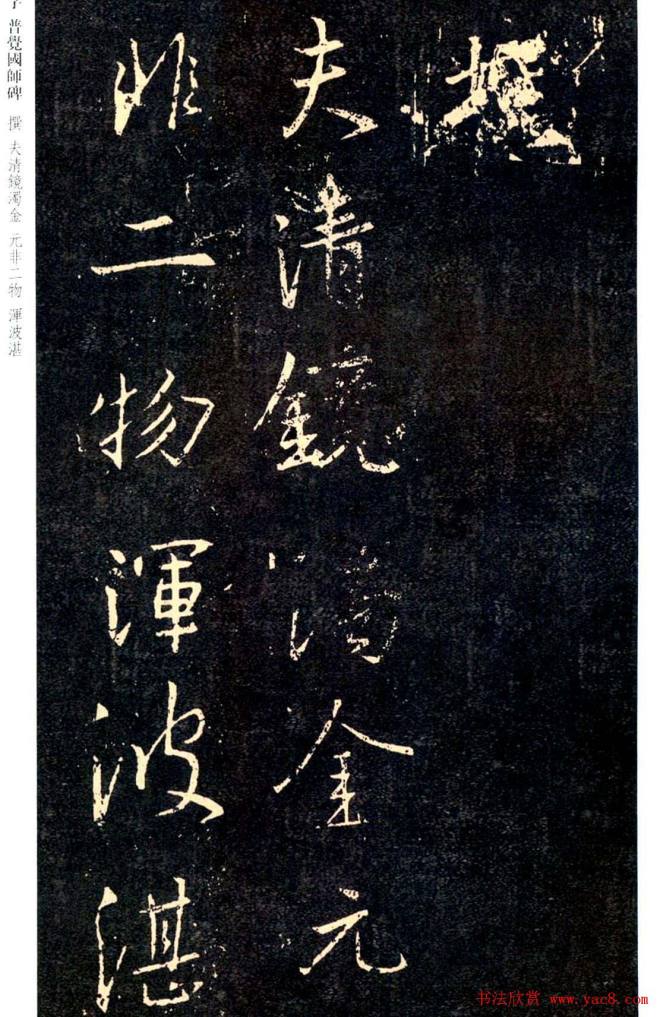 撰
夫清鏡濁金元
非二物渾波湛
普覺國師碑 撰 夫清鏡濁金 元非二物 渾波湛
书法欣赏 www.yac8.com